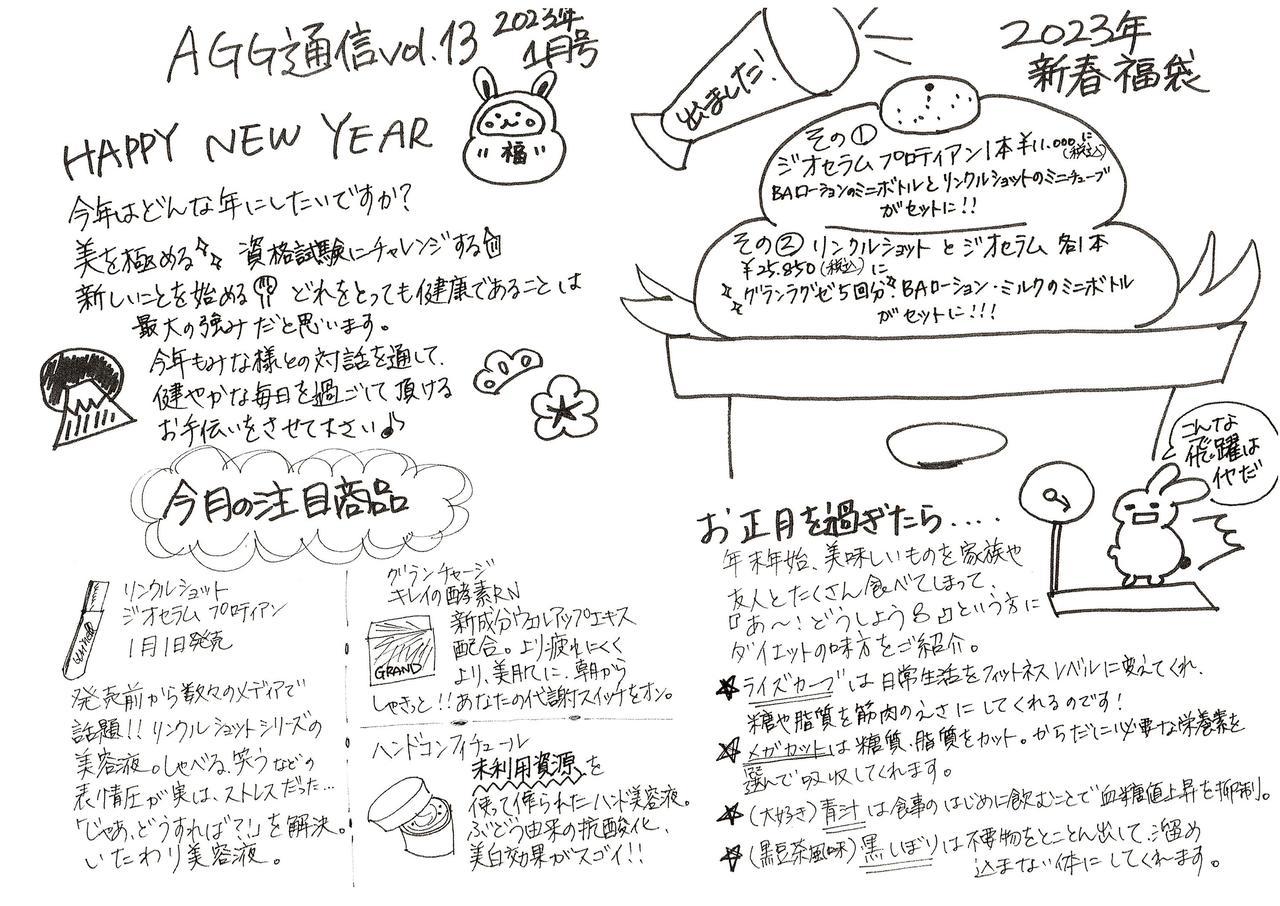 AGG通信vol.13
2023年
1月号
HAPPY NEW YEAR
福
今年はどんな年にしたいですか？
美を極める 資格試験にチャレンジする
新しいことを始める どれをとっても健康であることは
最大の強みだと思います。
今年もみな様との対話を通して、
健やかな毎日を過ごして頂ける
お手伝いをさせて下さい♪
今月の注目商品
リンクルショット
ジオセラム プロティアン
1月1日発売
発売前から数々のメディアで
話題!! リンクルショットシリーズの
美容液。しゃべる、笑うなどの
表情圧が実は、ストレスだった…
「じゃあ、どうすれば?!」を解決。
いたわり美容液。
グランチャージ
キレイの酵素RN
GRAND
新成分ウェルアップエキス
配合。より疲れにくく
より、美肌に、朝から
しゃきっと!! あなたの代謝スイッチをオン。
ハンドコンフィチュール
未利用資源を
使って作られたハンド美容液。
ぶどう由来の抗酸化、
美白効果がスゴイ!!
出ました!
2023年
新春福袋
その①
ジオセラム プロティアン1本¥11.000に
(税込)
BAローションのミニボトルとリンクルショットのミニチューブ
がセットに!!
その② リンクルショットとジオセラム 各1本
¥25.850(税込)に
グランラグゼ5回分 BAローション・ミルクのミニボトル
がセットに!!!
こんな
飛躍は
イヤだ
お正月を過ぎたら....
年末年始、美味しいものを家族や
友人とたくさん食べてしまって、
『あ〜！どうしよう』という方に
ダイエットの味方をご紹介。
☆ライズカーブは日常生活をフィットネスレベルに変えてくれ、
糖や脂質を筋肉のえさにしてくれるのです！
☆メガカットは糖質、脂質をカット。からだに必要な栄養素を
選んで吸収してくれます。
☆(大好き)青汁は食事のはじめに飲むことで血糖値上昇を抑制。
☆(黒豆茶風味)黒しぼりは不要物をとことん出して、溜め
込まない体にしてくれます。